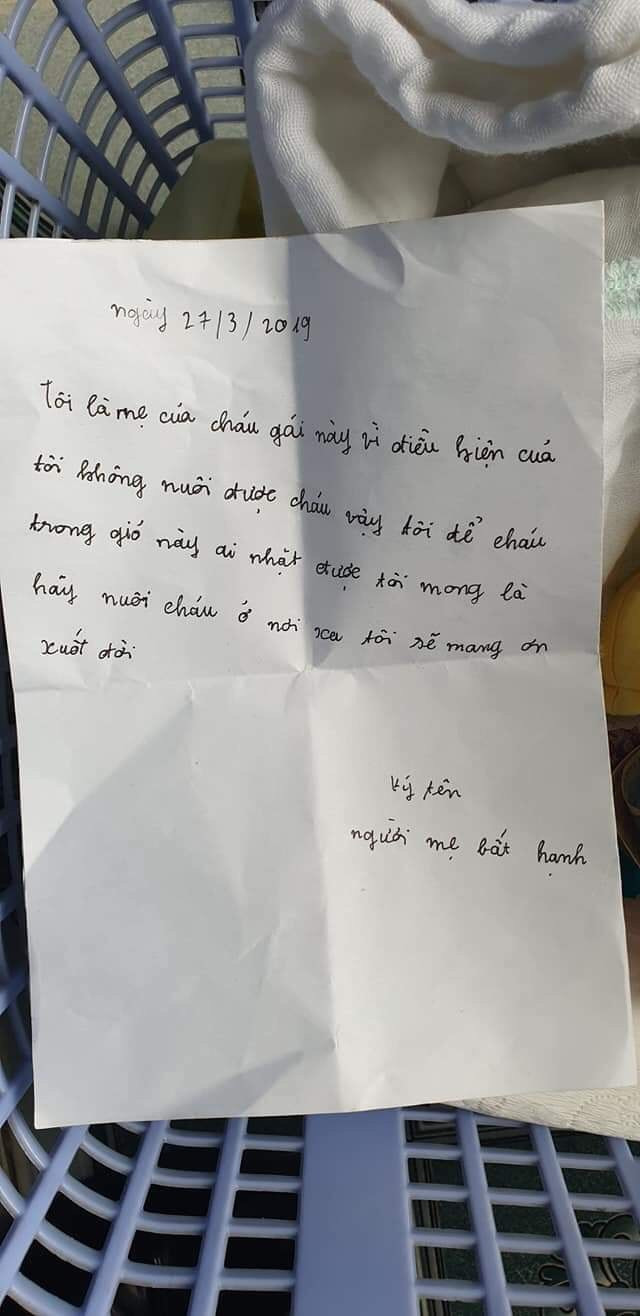 ngày 27/3/2019
Tôi là mẹ của cháu gái này vì điều kiện cuả
tôi không nuôi được cháu vậy tôi để cháu
trong giỏ này ai nhặt được tôi mong là
hãy nuôi cháu ở nơi xa tôi sẽ mang ơn
xuốt đời
ký tên
người mẹ bất hạnh